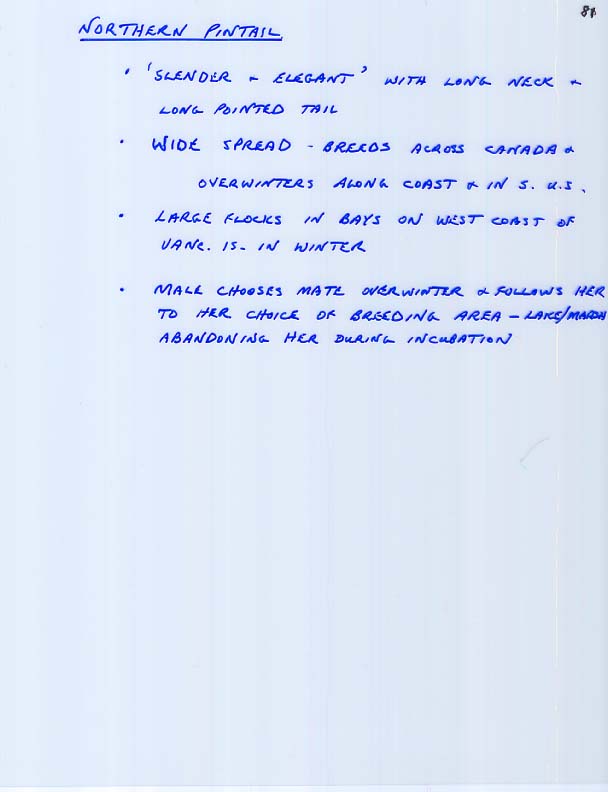 NORTHERN PINTAIL
• 'SLENDER & ELEGANT' WITH LONG NECK &
LONG POINTED TAIL
• WIDE SPREAD - BREEDS ACROSS CANADA &
OVERWINTERS ALONG COAST & IN S. U.S.
• LARGE FLOCKS IN BAYS ON WEST COAST OF
VANC. IS. IN WINTER
• MALE CHOOSES MATE OVERWINTER & FOLLOWS HER
TO HER CHOICE OF BREEDING AREA - LAKE/MARSH
ABANDONING HER DURING INCUBATION